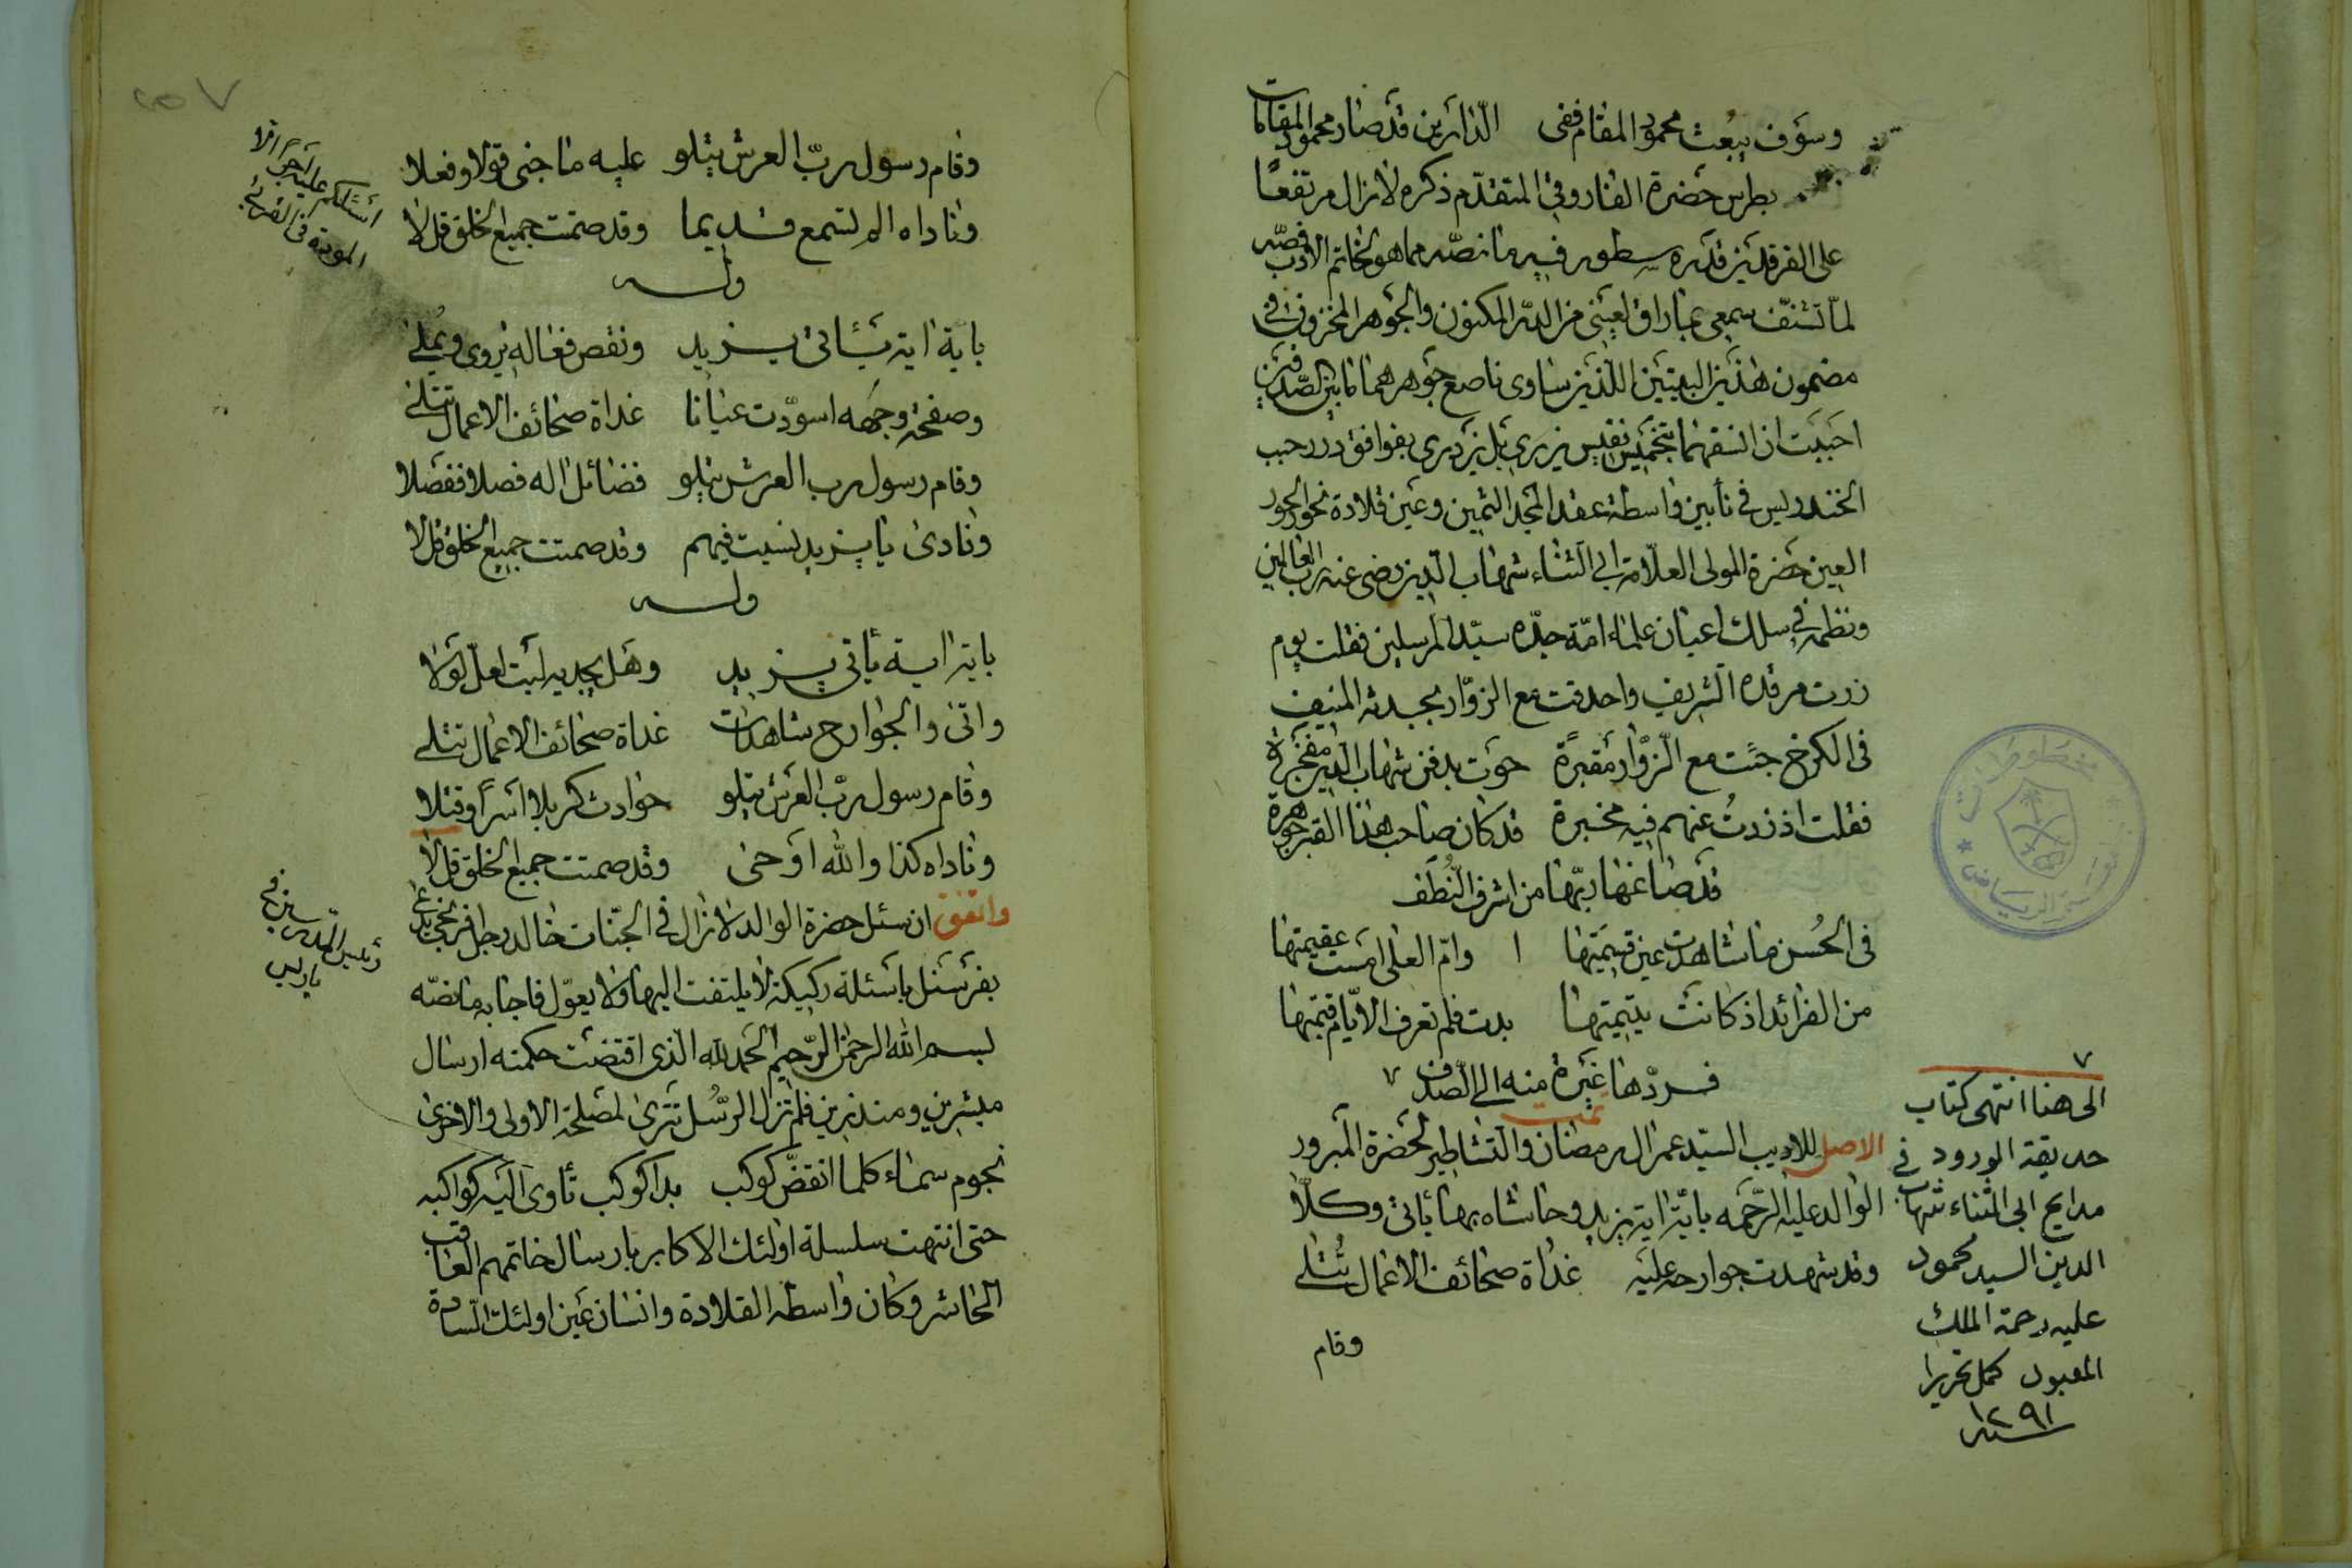 وسوف يبعث محمود المقام ففى الدارين قد صار محمود المقامات
بطرس حضرة الفاروقي المتقدم ذكره لازال مرتفعا
على الفرقدين قدره سطور فيه ما نصه مما هو لخاتم الادب فصّه
لمّا تشنّف سمعي بما راق لعيني من الدر المكنون والجوهر المخزون في
مضمون هذين البيتين اللذين ساوى ناصع جوهرهما ما بين الصدفين
احببت ان انسقهما بتخميس نفيس يزري بل يزدري بفواقع درر حبب
الخندريس في تأبين واسطة عقد المجد الثمين وعين قلادة نحور الحور
العين حضرة المولى العلّامة ابي الثناء شهاب الدين رضي عنه رب العالمين
ونظمه في سلك اعيان علماء امّة جدّه سيّد المرسلين فقلت يوم
زرت مرقده الشريف واحدقت مع الزوّار بجدثه المنيف
فى الكرخ جئت مع الزّوّار مقبرةً حوت بدفن شهاب الدين مفخرة
فقلت اذ زدتُ عنهم فيه مخبرة قد كان صاحب هذا القبر جوهرة
قد صاغها ربّها من اشرف النُّطف
فى الحُسن ما شاهدت عين قسيمتها وامّ العلى امست عقيمتها
من الفرائد اذ كانت يتيمتها بدت فلم تعرف الايّام قيمتها
فردّها غيرة منه الى الصّدف
تمت
الاصل للاديب السيّد عمر ال رمضان والتشاطير لحضرة المبرور
الوالد عليه الرّحمه باية اية يزيد وحاشاه بها يأتى وكلّا
وقد شهدت جوارحه عليه غداة صحائف الاعمال تُتلى
وقام
الى هنا انتهى كتاب
حديقة الورود في
مدايح ابى الثناء شهاب
الدين السيد محمود
عليه رحمة الملك
المعبود كمل تحريرا
سنة ١٢٩١
٢٥٧
وقام رسول ربّ العرش يتلو عليه ما جنى قولا وفعلا
وناداه الم تسمع قديما وقد صمتت جميع الخلق قل لا
اسئلكم عليه اجرا الا
المودة فى القربى
وله
باية اية يأتى يزيد ونقص فعاله يروى ويملى
وصفحة وجهه اسودّت عيانا غداة صحائف الاعمال تتلى
وقام رسول رب العرش يتلو فضائل اله فصلا ففصلا
ونادى يا يزيد نسيت فيهم وقد صمتت جميع الخلق قل لا
وله
باية اية يأتى يزيد وهل يجديه ليت لعل لولا
واتى والجوارح شاهدات غداة صحائف الاعمال تتلى
وقام رسول ربّ العرش يتلو حوادث كربلا اسرًا وقتلا
وناداه كذا والله اوحى وقد صمتت جميع الخلق قل لا
واتفق ان سئل حضرة الوالد لازال في الجنّات خالد رجل افرنجي يدعى
بفرسنل باسئلة ركيكة لا يلتفت اليها ولا يعوّل فاجابه ما نصّه
رئيس المدرسين في
باريس
بسم الله الرحمن الرّحيم الحمد لله الذى اقتضت حكمته ارسال
مبشرين ومنذرين فلم تزل الرُّسُل تترى لمصلحة الاولى والاخرى
نجوم سماء كلما انقضّ كوكب بدا كوكب تأوى اليه كواكبه
حتى انتهت سلسلة اولئك الاكابر بارسال خاتمهم العاقب
الحاشر وكان واسطة القلادة وانسان عين اولئك السّادة